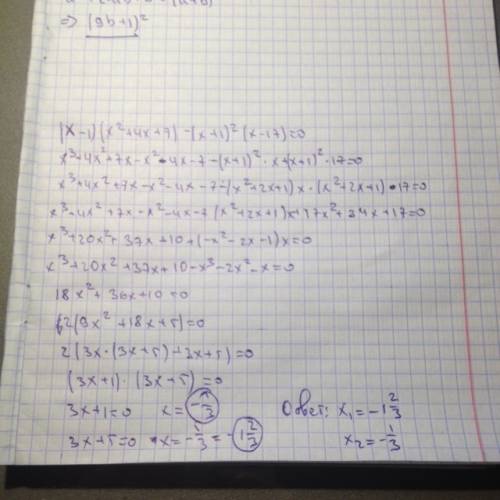 => (9b+1)²
(x-1)(x²+4x+7)-(x+1)²(x-17)=0
x³+4x²+7x-x²-4x-7-(x+1)²·x+(x+1)²·17=0
x³+4x²+7x-x²-4x-7-(x²+2x+1)x·(x²+2x+1)·17=0
x³+4x²+7x-x²-4x-7(x²+2x+1)x+17x²+34x+17=0
x³+20x²+37x+10+(-x²-2x-1)x=0
x³+20x²+37x+10-x³-2x²-x=0
18x²+36x+10=0
2(9x²+18x+5)=0
2(3x·(3x+5)+3x+5)=0
(3x+1)·(3x+5)=0
3x+1=0 x=-1/3 Ответ: x₁=-1 2/3
3x+5=0 x=-1/3=-1 2/3 x₂=-1/3